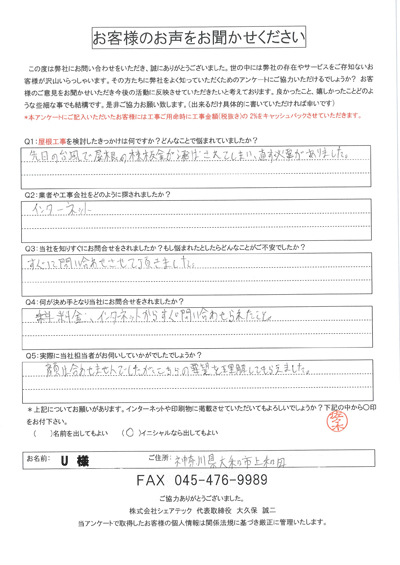 お客様のお声をお聞かせください
この度は弊社にお問い合わせをいただき、誠にありがとうございました。世の中には弊社の存在やサービスをご存知ないお
客様が沢山いらっしゃいます。その方たちに弊社をよく知っていただくためのアンケートにご協力いただけるでしょうか? お客
様のご意見をお聞かせいただき今後の活動に反映させていただきたいと考えております。良かったこと、嬉しかったことどのよ
うな些細な事でも結構です。是非ご協力お願い致します。(出来るだけ具体的に書いていただければ幸いです)
*本アンケートにご記入いただいたお客様には工事ご用命時に工事金額(税抜き)の 2%をキャッシュバックさせていただきます。
Q1:屋根工事を検討したきっかけは何ですか?どんなことで悩まれていましたか?
先日の台風で屋根の棟板金が飛ばされてしまい、直す必要がありました。
Q2:業者や工事会社をどのように探されましたか?
インターネット
Q3:当社を知りすぐにお問合せをされましたか?もし悩まれたとしたらどんなことがご不安でしたか?
すぐに問い合わせさせて頂きました。
Q4:何が決め手となり当社にお問合せをされましたか?
料金、インターネットからすぐ問い合わせられたこと。
Q5:実際に当社担当者がお伺いしていかがでしたでしょうか?
顔は合わせませんでしたが、こちらの要望を理解してもらえました。
*上記についてお願いがあります。インターネットや印刷物に掲載させていただいてもよろしいでしょうか?下記の中から〇印
をお付下さい。
( )名前を出してもよい (〇)イニシャルなら出してもよい
お名前: U 様 ご住所: 神奈川県大和市上和田
FAX 045-476-9989
ご協力ありがとうございました。
株式会社シェアテック 代表取締役 大久保 誠二
当アンケートで取得したお客様の個人情報は関係法規に基づき厳正に管理いたします。